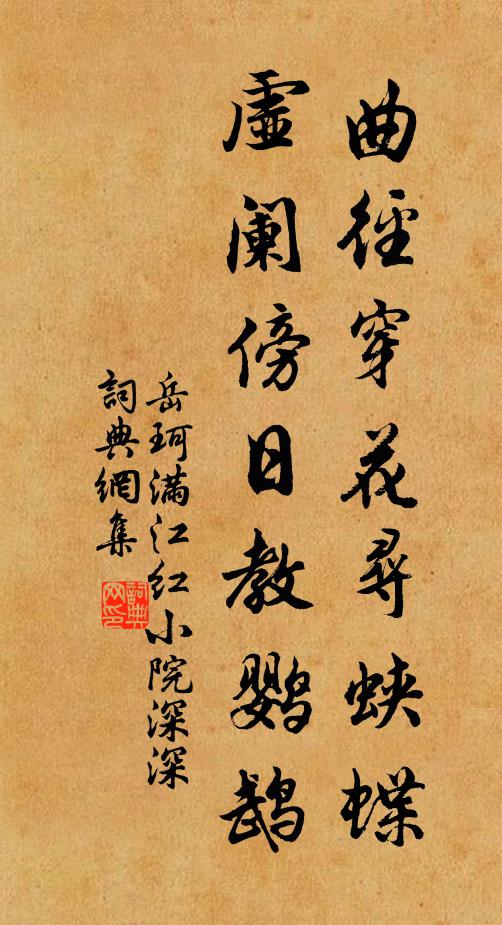 曲徑穿花尋蛺蝶
虛闌傍日教鸚鵡
岳珂满江红小院深深
詞典網集
詞典网印